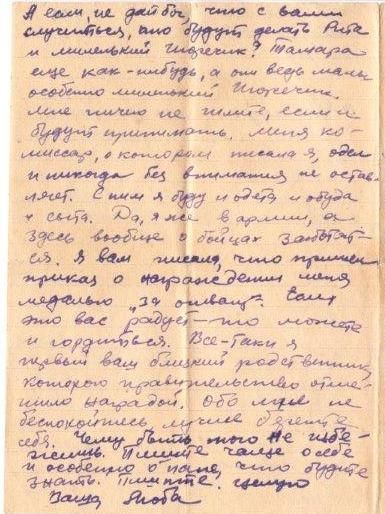 А если, не дай бог, что с вами
случиться, что будут делать Рита
и миленький Игоречик? Тамара
еще как-нибудь, а они ведь малы
особенно миленький Игоречик.
Мне ничего не шлите, если и
будут принимать. Меня ко-
миссар, о котором писала я, одел
и никогда без внимания не остав-
ляет. С ним я буду и одета и обута
и сыта. Да, я же в армии, а
здесь вообще о бойцах заботят-
ся. Я вам писала, что пришел
приказ о награждении меня
медалью "За отвагу". Если
это вас радует – то можете
и гордиться. Все-таки я
первый вам близкий родственник
которого правительство отме-
тило наградой. Обо мне не
беспокойтесь, лучше берегите
себя. Чему быть того не избе-
жишь. Пишите чаще о себе
и особенно о папе, что будете
знать. Пишите. Целую
Ваша